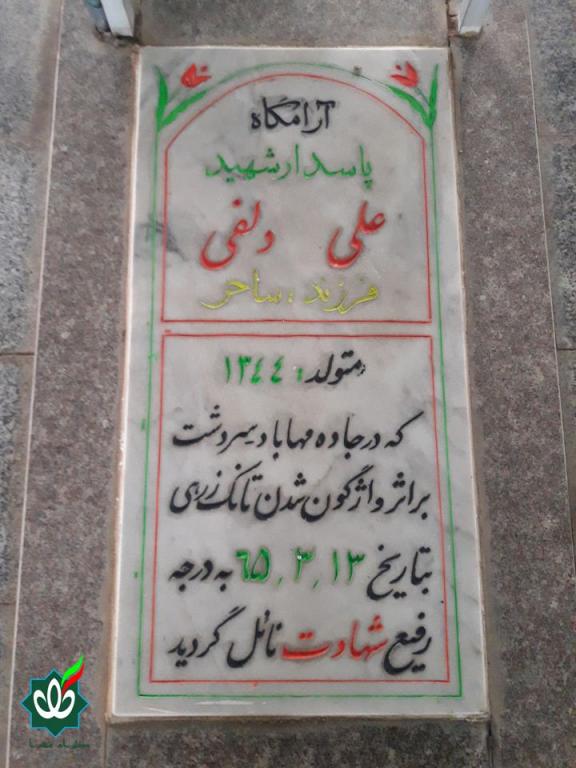 آرامگاه
پاسدار شهید
علی دلفی
فرزند : ساحر
متولد : ١٣٤٤
که در جاده مهاباد سردشت
بر اثر واژگون شدن تانک زرهی
بتاریخ ١٣٫٣٫٦٥ به درجه
رفیع شهادت نائل گردید